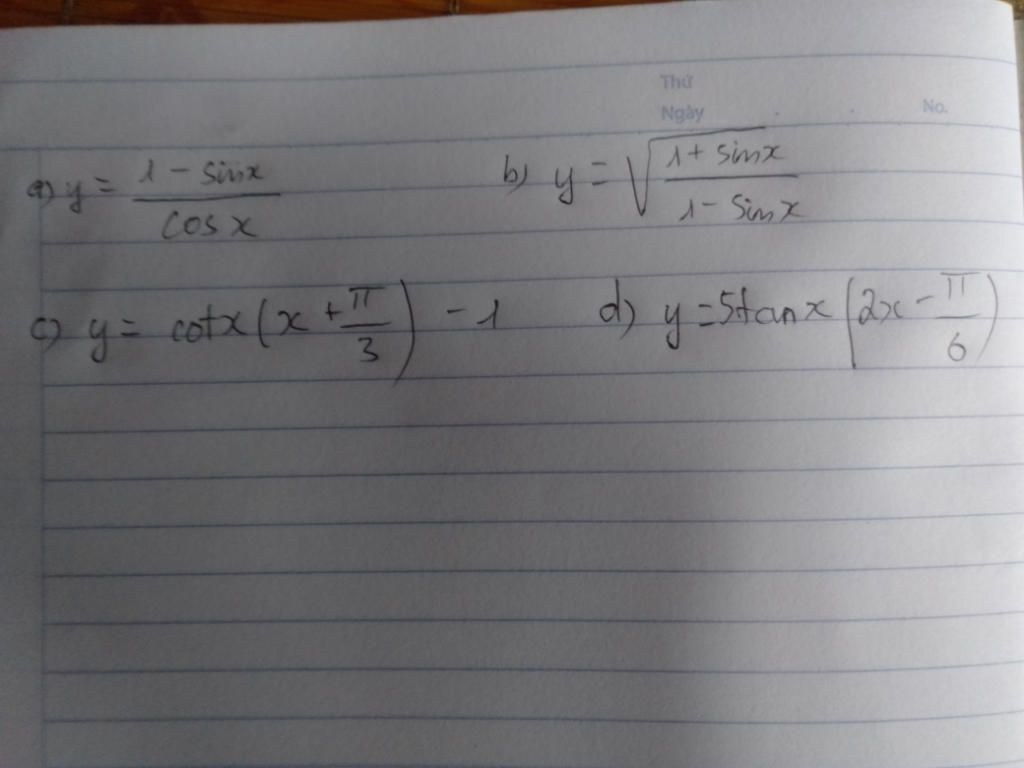 Thứ
Ngày No.
a) y = \frac{1 - sinx}{cos x} b) y = \sqrt{\frac{1 + sinx}{1 - sinx}}
c) y = cotx (x + \frac{π}{3}) - 1 d) y = 5tanx (2x - \frac{π}{6})